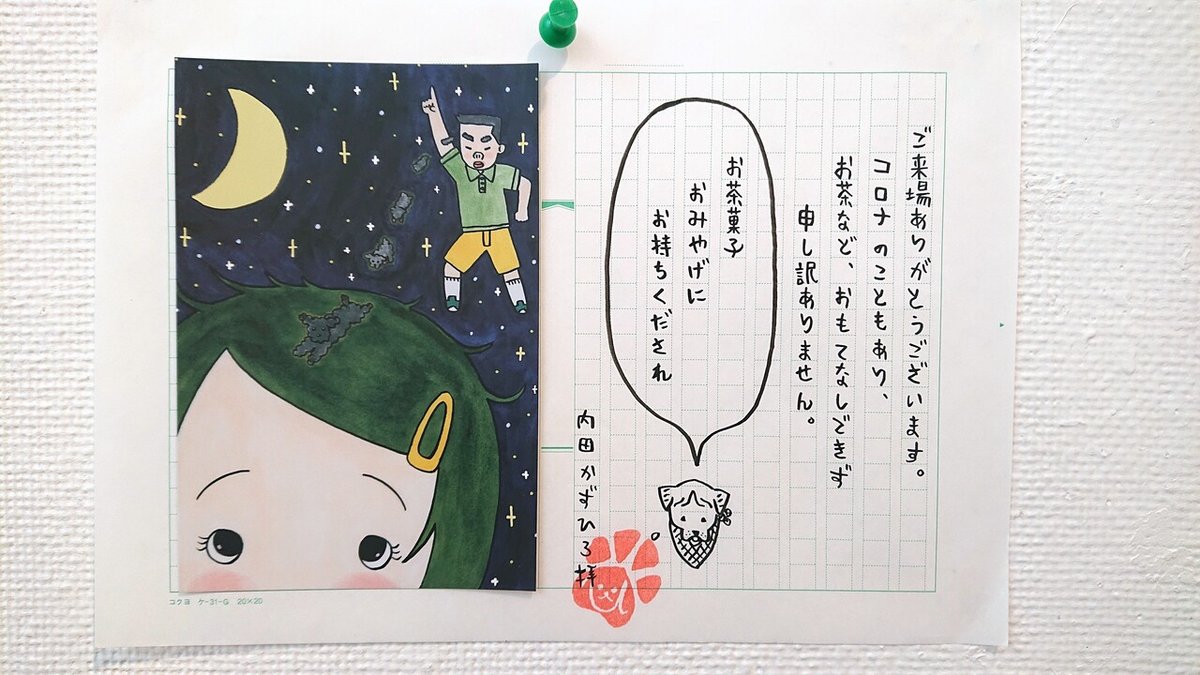 ご来場ありがとうございます。
コロナのこともあり、
お茶など、おもてなしできず
申し訳ありません。
お茶菓子
おみやげに
お持ちくだされ
内田かずひろ拝
コクヨ ケ-31-G 20×20